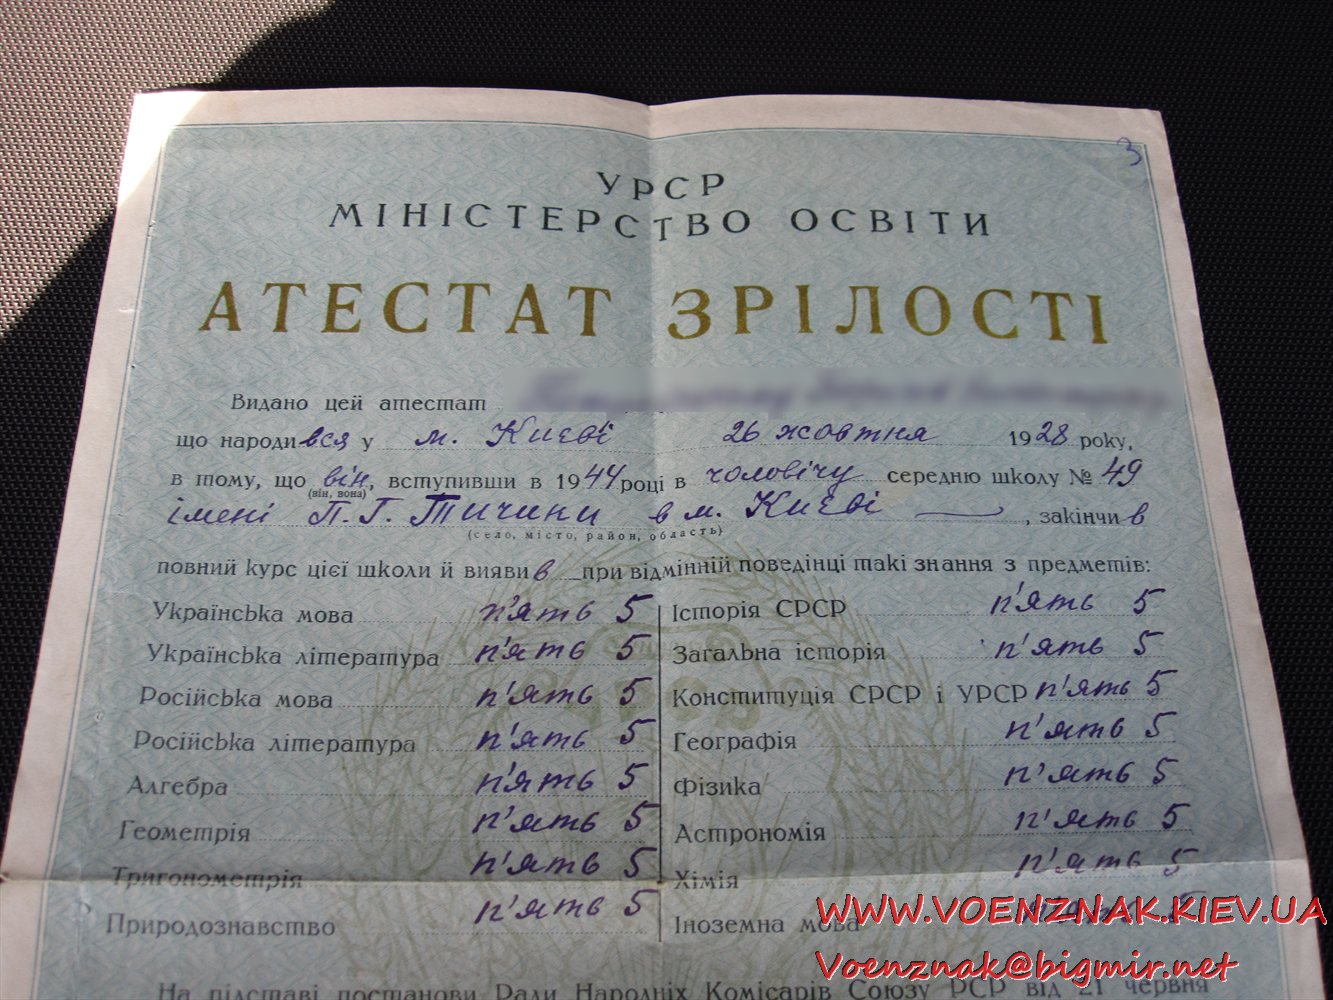 3
УРСР
МІНІСТЕРСТВО ОСВІТИ
АТЕСТАТ ЗРІЛОСТІ
Видано цей атестат
що народився у м. Києві 26 жовтня 1928 року,
в тому, що він, вступивши в 1944 році в чоловічу середню школу № 49
(він, вона)
імені П. Г. Тичини в м. Києві, закінчив
(село, місто, район, область)
повний курс цієї школи й виявив при відмінній поведінці такі знання з предметів:
Українська мова п'ять 5
Українська література п'ять 5
Російська мова п'ять 5
Російська література п'ять 5
Алгебра п'ять 5
Геометрія п'ять 5
Тригонометрія п'ять 5
Природознавство п'ять 5
Історія СРСР п'ять 5
Загальна історія п'ять 5
Конституція СРСР і УРСР п'ять 5
Географія п'ять 5
Фізика п'ять 5
Астрономія п'ять 5
Хімія п'ять 5
Іноземна мова
На підставі постанови Ради Народніх Комісарів Союзу РСР від 21 червня
WWW.VOENZNAK.KIEV.UA
Voenznak@bigmir.net